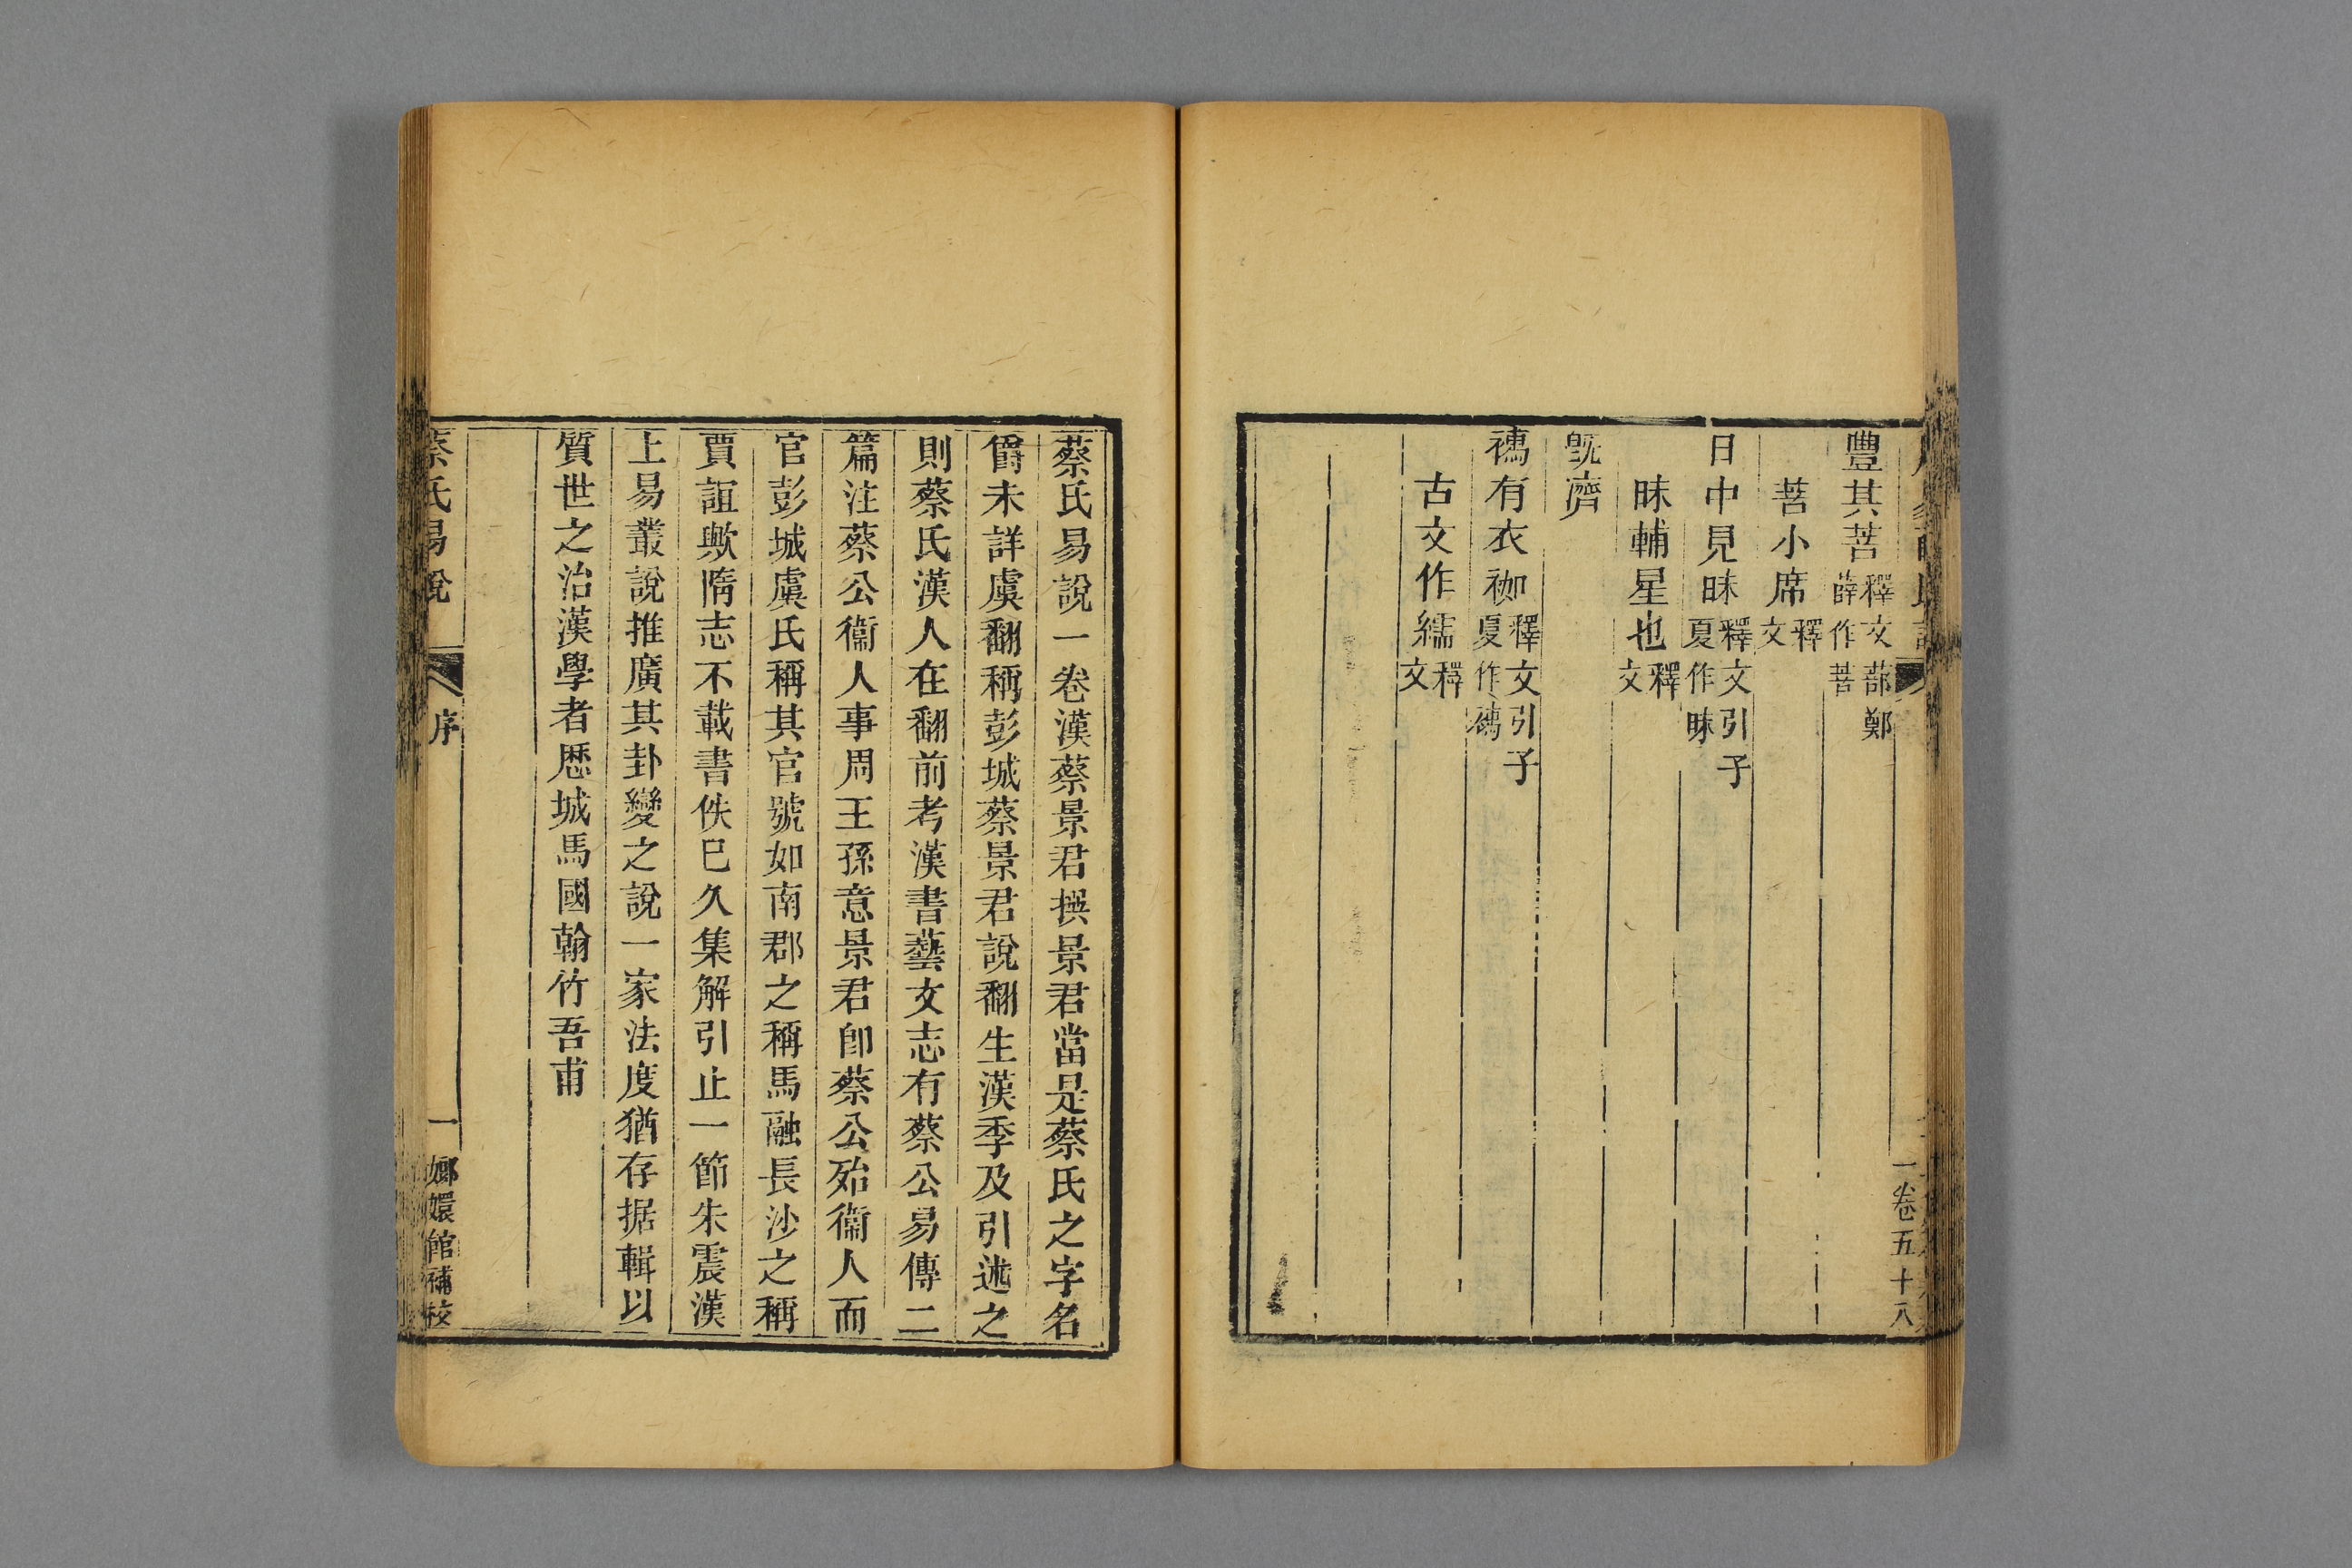 豐其菩釋文蔀鄭薛作菩
菩小席釋文
日中見昧釋文引子夏作昧
昧輔星也釋文
旣濟
襦有衣袽釋文引子夏作襦
古文作繻釋文
一卷五十八
蔡氏易說一卷漢蔡景君撰景君當是蔡氏之字名
爵未詳虞翻稱彭城蔡景君說翻生漢季及引述之
則蔡氏漢人在翻前考漢書藝文志有蔡公易傳二
篇注蔡公衞人事周王孫意景君卽蔡公殆衞人而
官彭城虞氏稱其官號如南郡之稱馬融長沙之稱
賈誼歟隋志不載書佚巳久集解引止一節朱震漢
上易叢說推廣其卦變之說一家法度猶存据輯以
質世之治漢學者歷城馬國翰竹吾甫
蔡氏易說 序 一 嫏嬛館補校